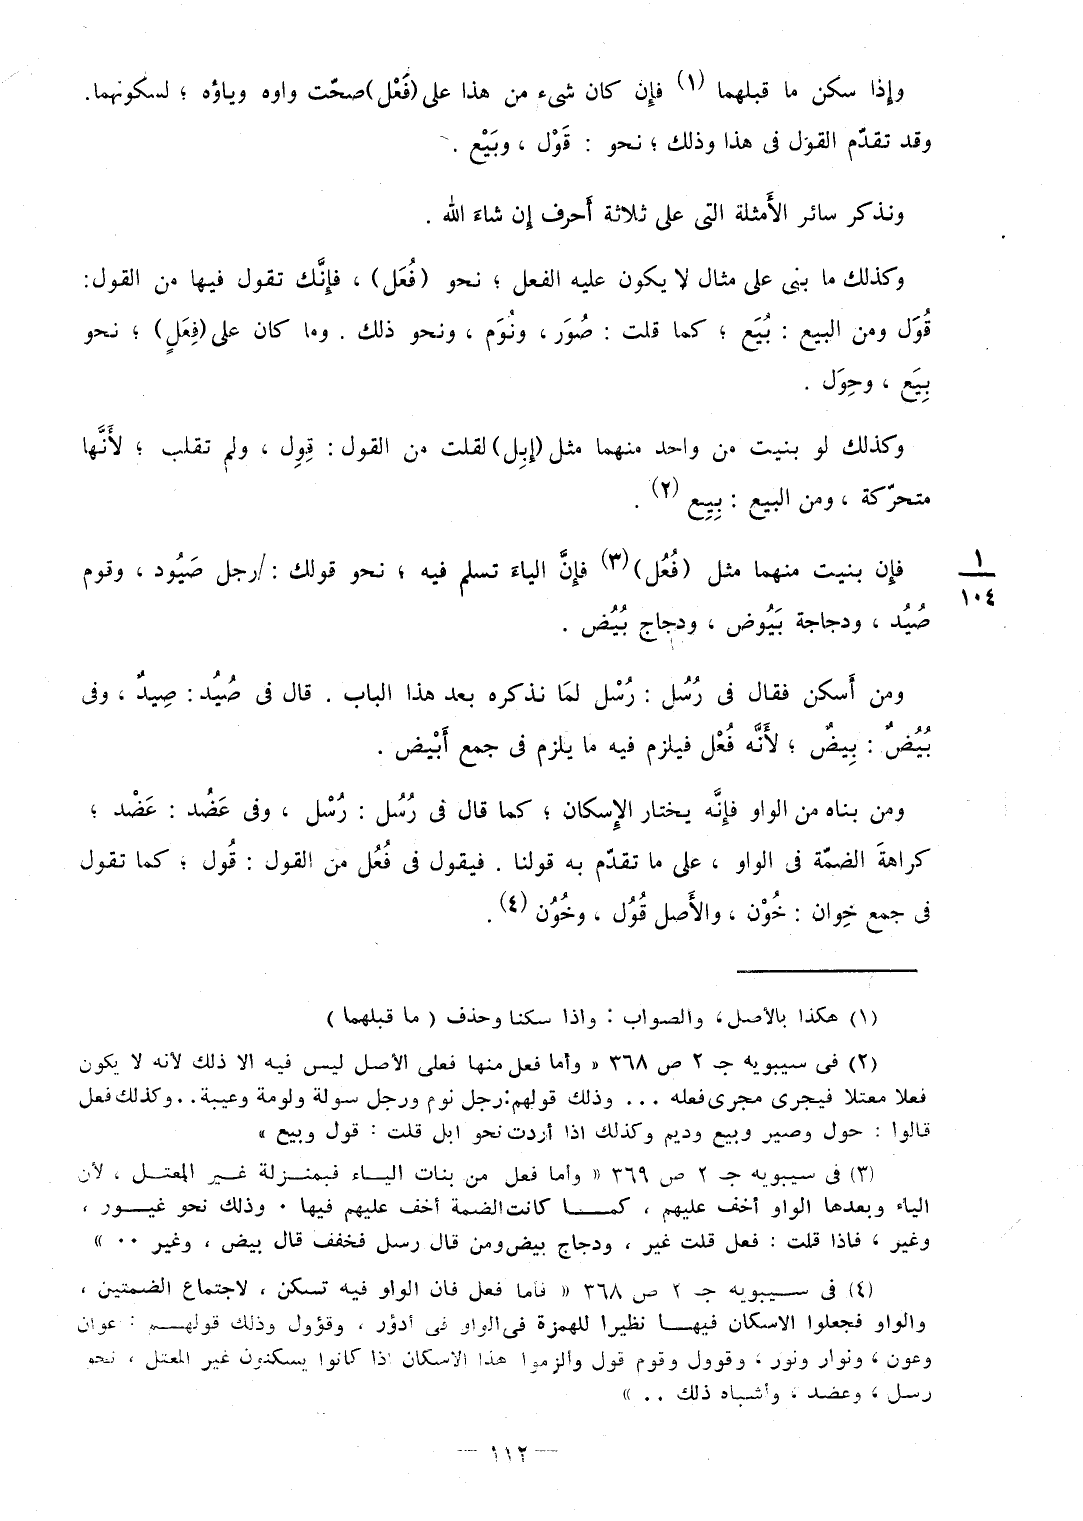 وإذا سكن ما قبلهما (١) فإن كان شىء من هذا على (فَعْل) صحّت واوه وياؤه ؛ لسكونهما.
وقد تقدّم القول فى هذا وذلك ؛ نحو : قَوْل ، وبَيْع .
ونذكر سائر الأَمثلة التى على ثلاثة أَحرف إن شاءَ الله .
وكذلك ما بنى على مثال لا يكون عليه الفعل ؛ نحو (فُعَل) ، فإنَّك تقول فيها من القول:
قُوَل ومن البيع : بُيَع ؛ كما قلت : صُوَر ، ونُوَم ، ونحو ذلك . وما كان على (فِعَلٍ) ؛ نحو
بِيَع ، وحِوَل .
وكذلك لو بنيت من واحد منهما مثل (إِبِل) لقلت من القول : قِوِل ، ولم تقلب ؛ لأَنَّها
متحرّكة ، ومن البيع : بِيِع (٢) .
فإن بنيت منهما مثل (فُعُل) (٣) فإنَّ الياءَ تسلم فيه ؛ نحو قولك : /رجل صَيُود ، وقوم
١
١٠٤
صُيُد ، ودجاجة بَيُوض ، ودجاج بُيُض .
ومن أَسكن فقال فى رُسُل : رُسْل لمَا نذكره بعد هذا الباب . قال فى صُيُد : صِيدٌ ، وفى
بُيُضٌ : بِيضٌ ؛ لأَنَّه فُعْل فيلزم فيه ما يلزم فى جمع أَبْيض .
ومن بناه من الواو فإنَّه يختار الإِسكان ؛ كما قال فى رُسُل : رُسْل ، وفى عَضُد : عَضْد ؛
كراهةَ الضمّة فى الواو ، على ما تقدّم به قولنا . فيقول فى فُعُل من القول : قُول ؛ كما تقول
فى جمع خِوان : خُوْن ، والأَصل قُوُل ، وخُوُن (٤) .
(١) هكذا بالأصل، والصواب : واذا سكنا وحذف ( ما قبلهما )
(٢) فى سيبويه جـ ٢ ص ٣٦٨ « وأما فعل منها فعلى الأصل ليس فيه الا ذلك لأنه لا يكون
فعلا معتلا فيجرى مجرى فعله ... وذلك قولهم:رجل نوم ورجل سولة ولومة وعيبة..وكذلك فعل
قالوا : حول وصير وبيع وديم وكذلك اذا أردت نحو ابل قلت : قول وبيع »
(٣) فى سيبويه جـ ٢ ص ٣٦٩ « وأما فعل من بنات الياء فبمنزلة غير المعتل ، لأن
الياء وبعدها الواو أخف عليهم ، كما كانت الضمة أخف عليهم فيها . وذلك نحو غيور ،
وغير ، فاذا قلت : فعل قلت غير ، ودجاج بيض ومن قال رسل فخفف قال بيض ، وغير .. »
(٤) فى سيبويه جـ ٢ ص ٣٦٨ « فأما فعل فان الواو فيه تسكن ، لاجتماع الضمتين ،
والواو فجعلوا الاسكان فيها نظيرا للهمزة فى الواو فى أدؤر ، وقؤول وذلك قولهم : عوان
وعون ، ونوار ونور ، وقوول وقوم قول والزموا هذا الاسكان اذا كانوا يسكنون غير المعتل ، نحو
رسل ، وعضد ، وأشباه ذلك .. »
— ١١٢ —